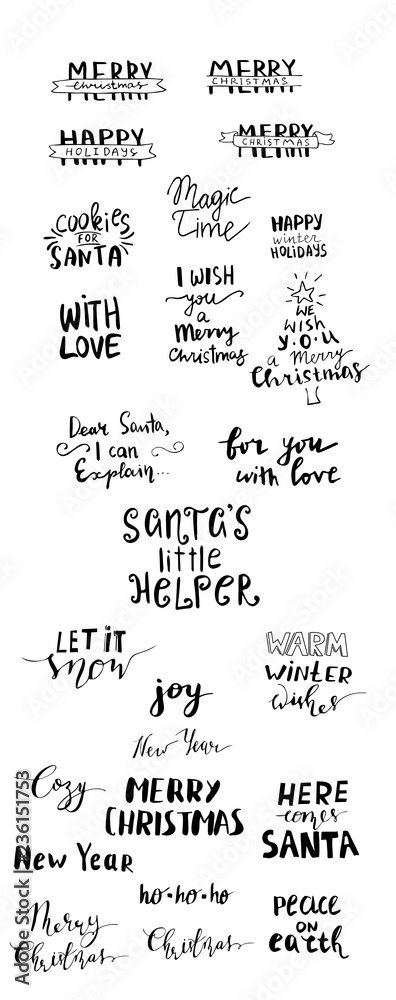 MERRY
Christmas
MERRY
CHRISTMAS
HAPPY
HOLIDAYS
MERRY
CHRISTMAS
Magic
Time
cookies
FOR
SANTA
HAPPY
winter
HOLIDAYS
WITH
LOVE
I WISH
you
a
Merry
Christmas
WE
WISH
Y.O.U
a Merry
Christmas
Dear Santa,
I can
Explain...
for you
with love
SANTA'S
little
HELPER
LET IT
snow
WARM
WINTER
wishes
joy
New Year
Cozy
MERRY
CHRISTMAS
HERE
comes
SANTA
New Year
ho•ho•ho
Merry
Christmas
Christmas
peace
ON
earth
Adobe Stock
#236151753